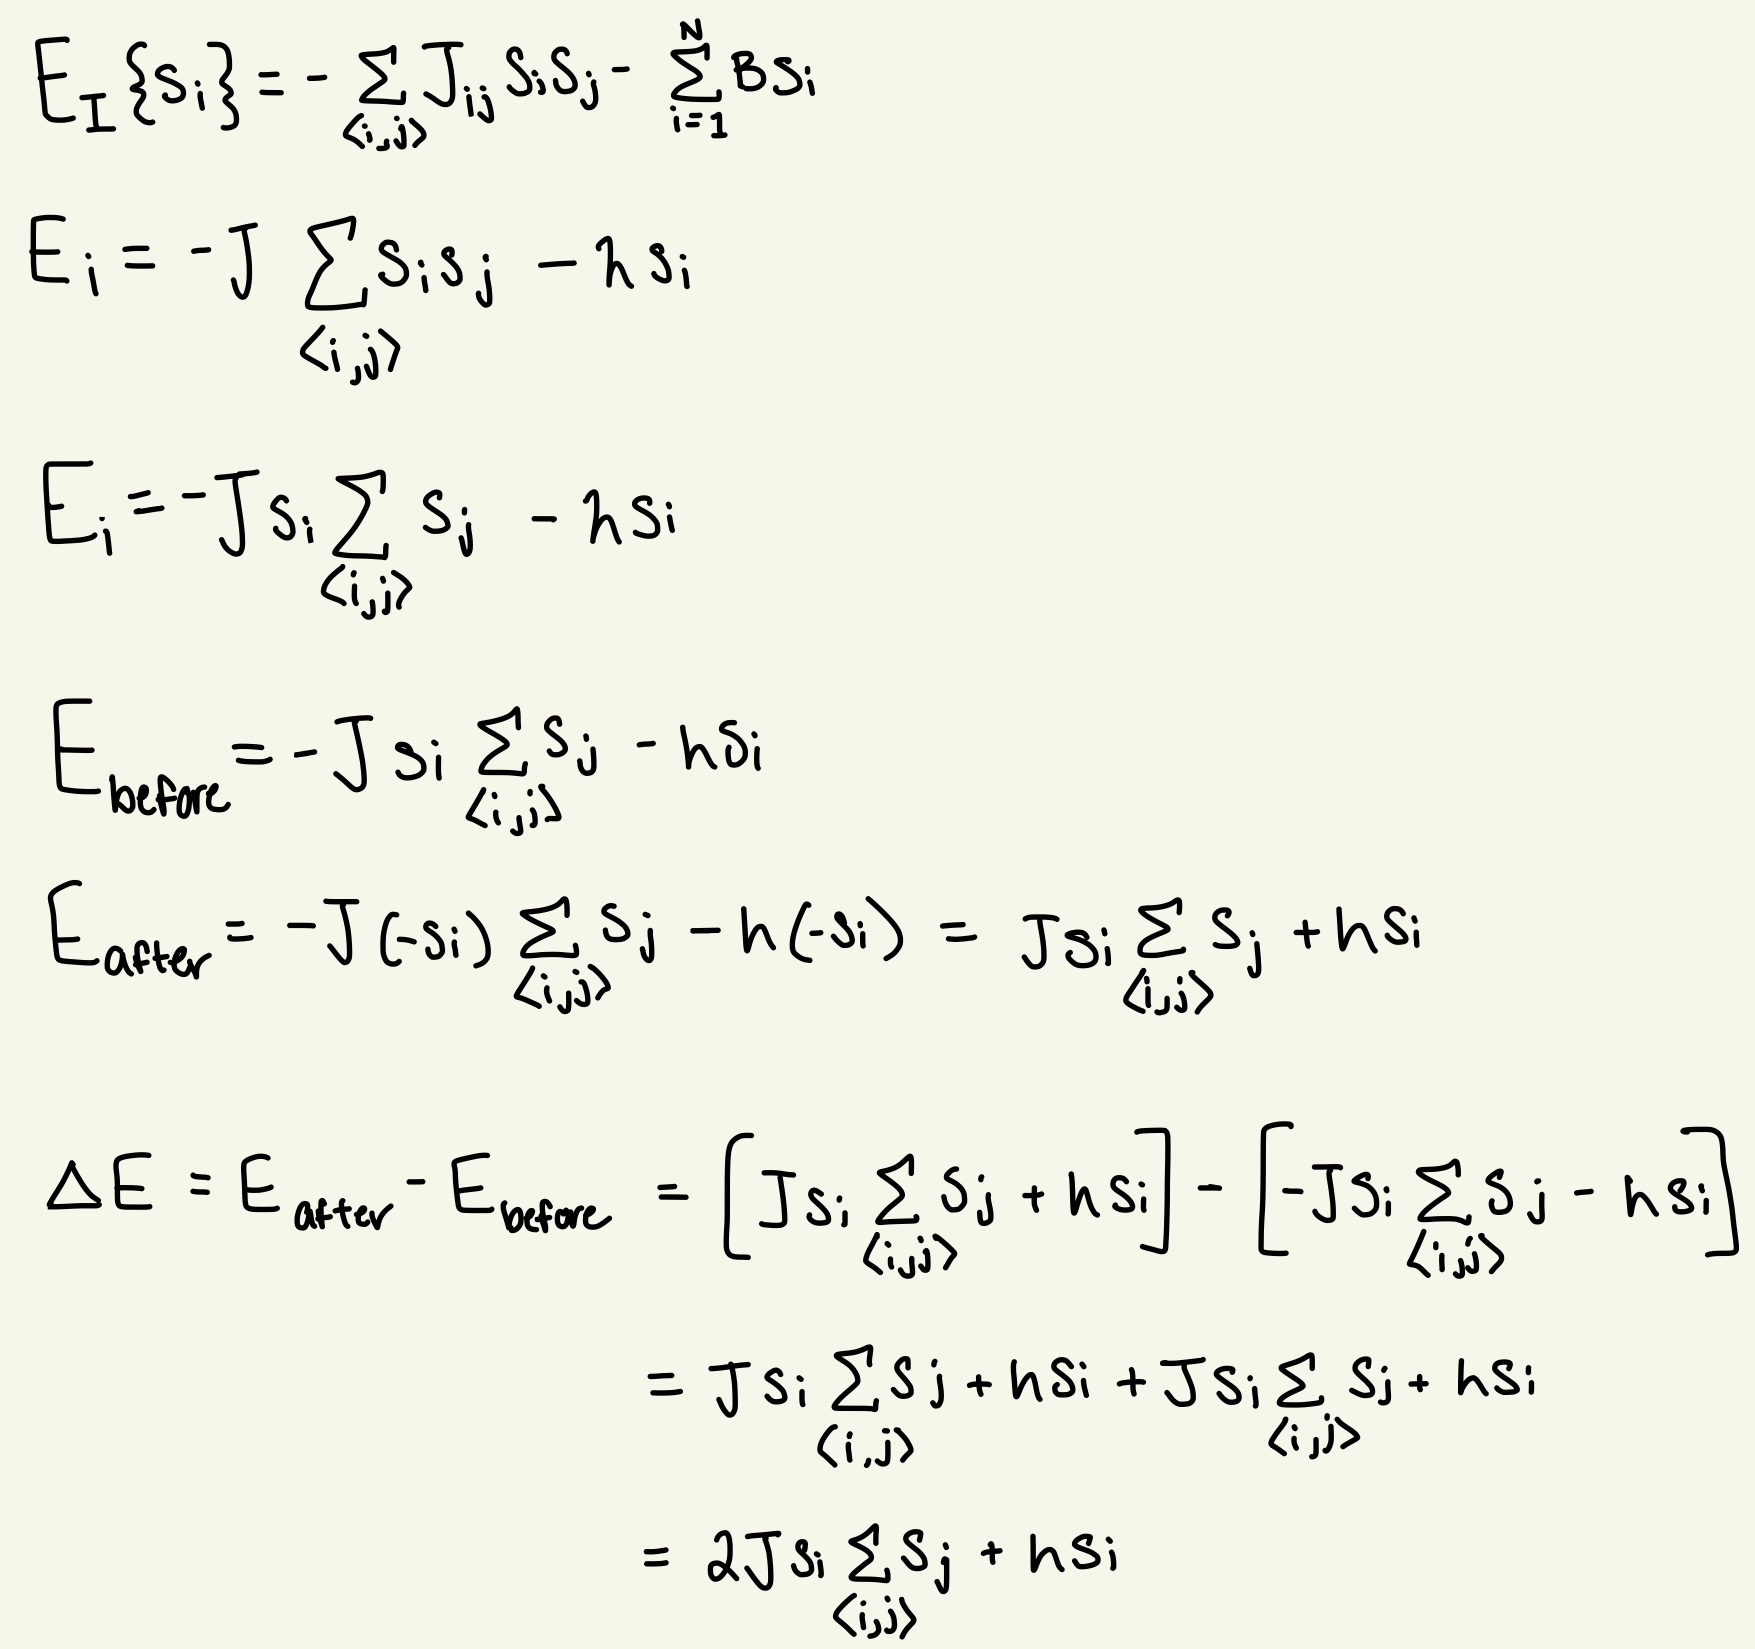 E_I{s_i} = - Σ_{<i,j>} J_{ij} s_i s_j - Σ_{i=1}^{N} B s_i
E_i = -J Σ_{<i,j>} s_i s_j - h s_i
E_i = -J s_i Σ_{<i,j>} s_j - h s_i
E_before = -J s_i Σ_{<i,j>} s_j - h s_i
E_after = -J(-s_i) Σ_{<i,j>} s_j - h(-s_i) = J s_i Σ_{<i,j>} s_j + h s_i
ΔE = E_after - E_before = [J s_i Σ_{<i,j>} s_j + h s_i] - [-J s_i Σ_{<i,j>} s_j - h s_i]
= J s_i Σ_{<i,j>} s_j + h s_i + J s_i Σ_{<i,j>} s_j + h s_i
= 2J s_i Σ_{<i,j>} s_j + h s_i